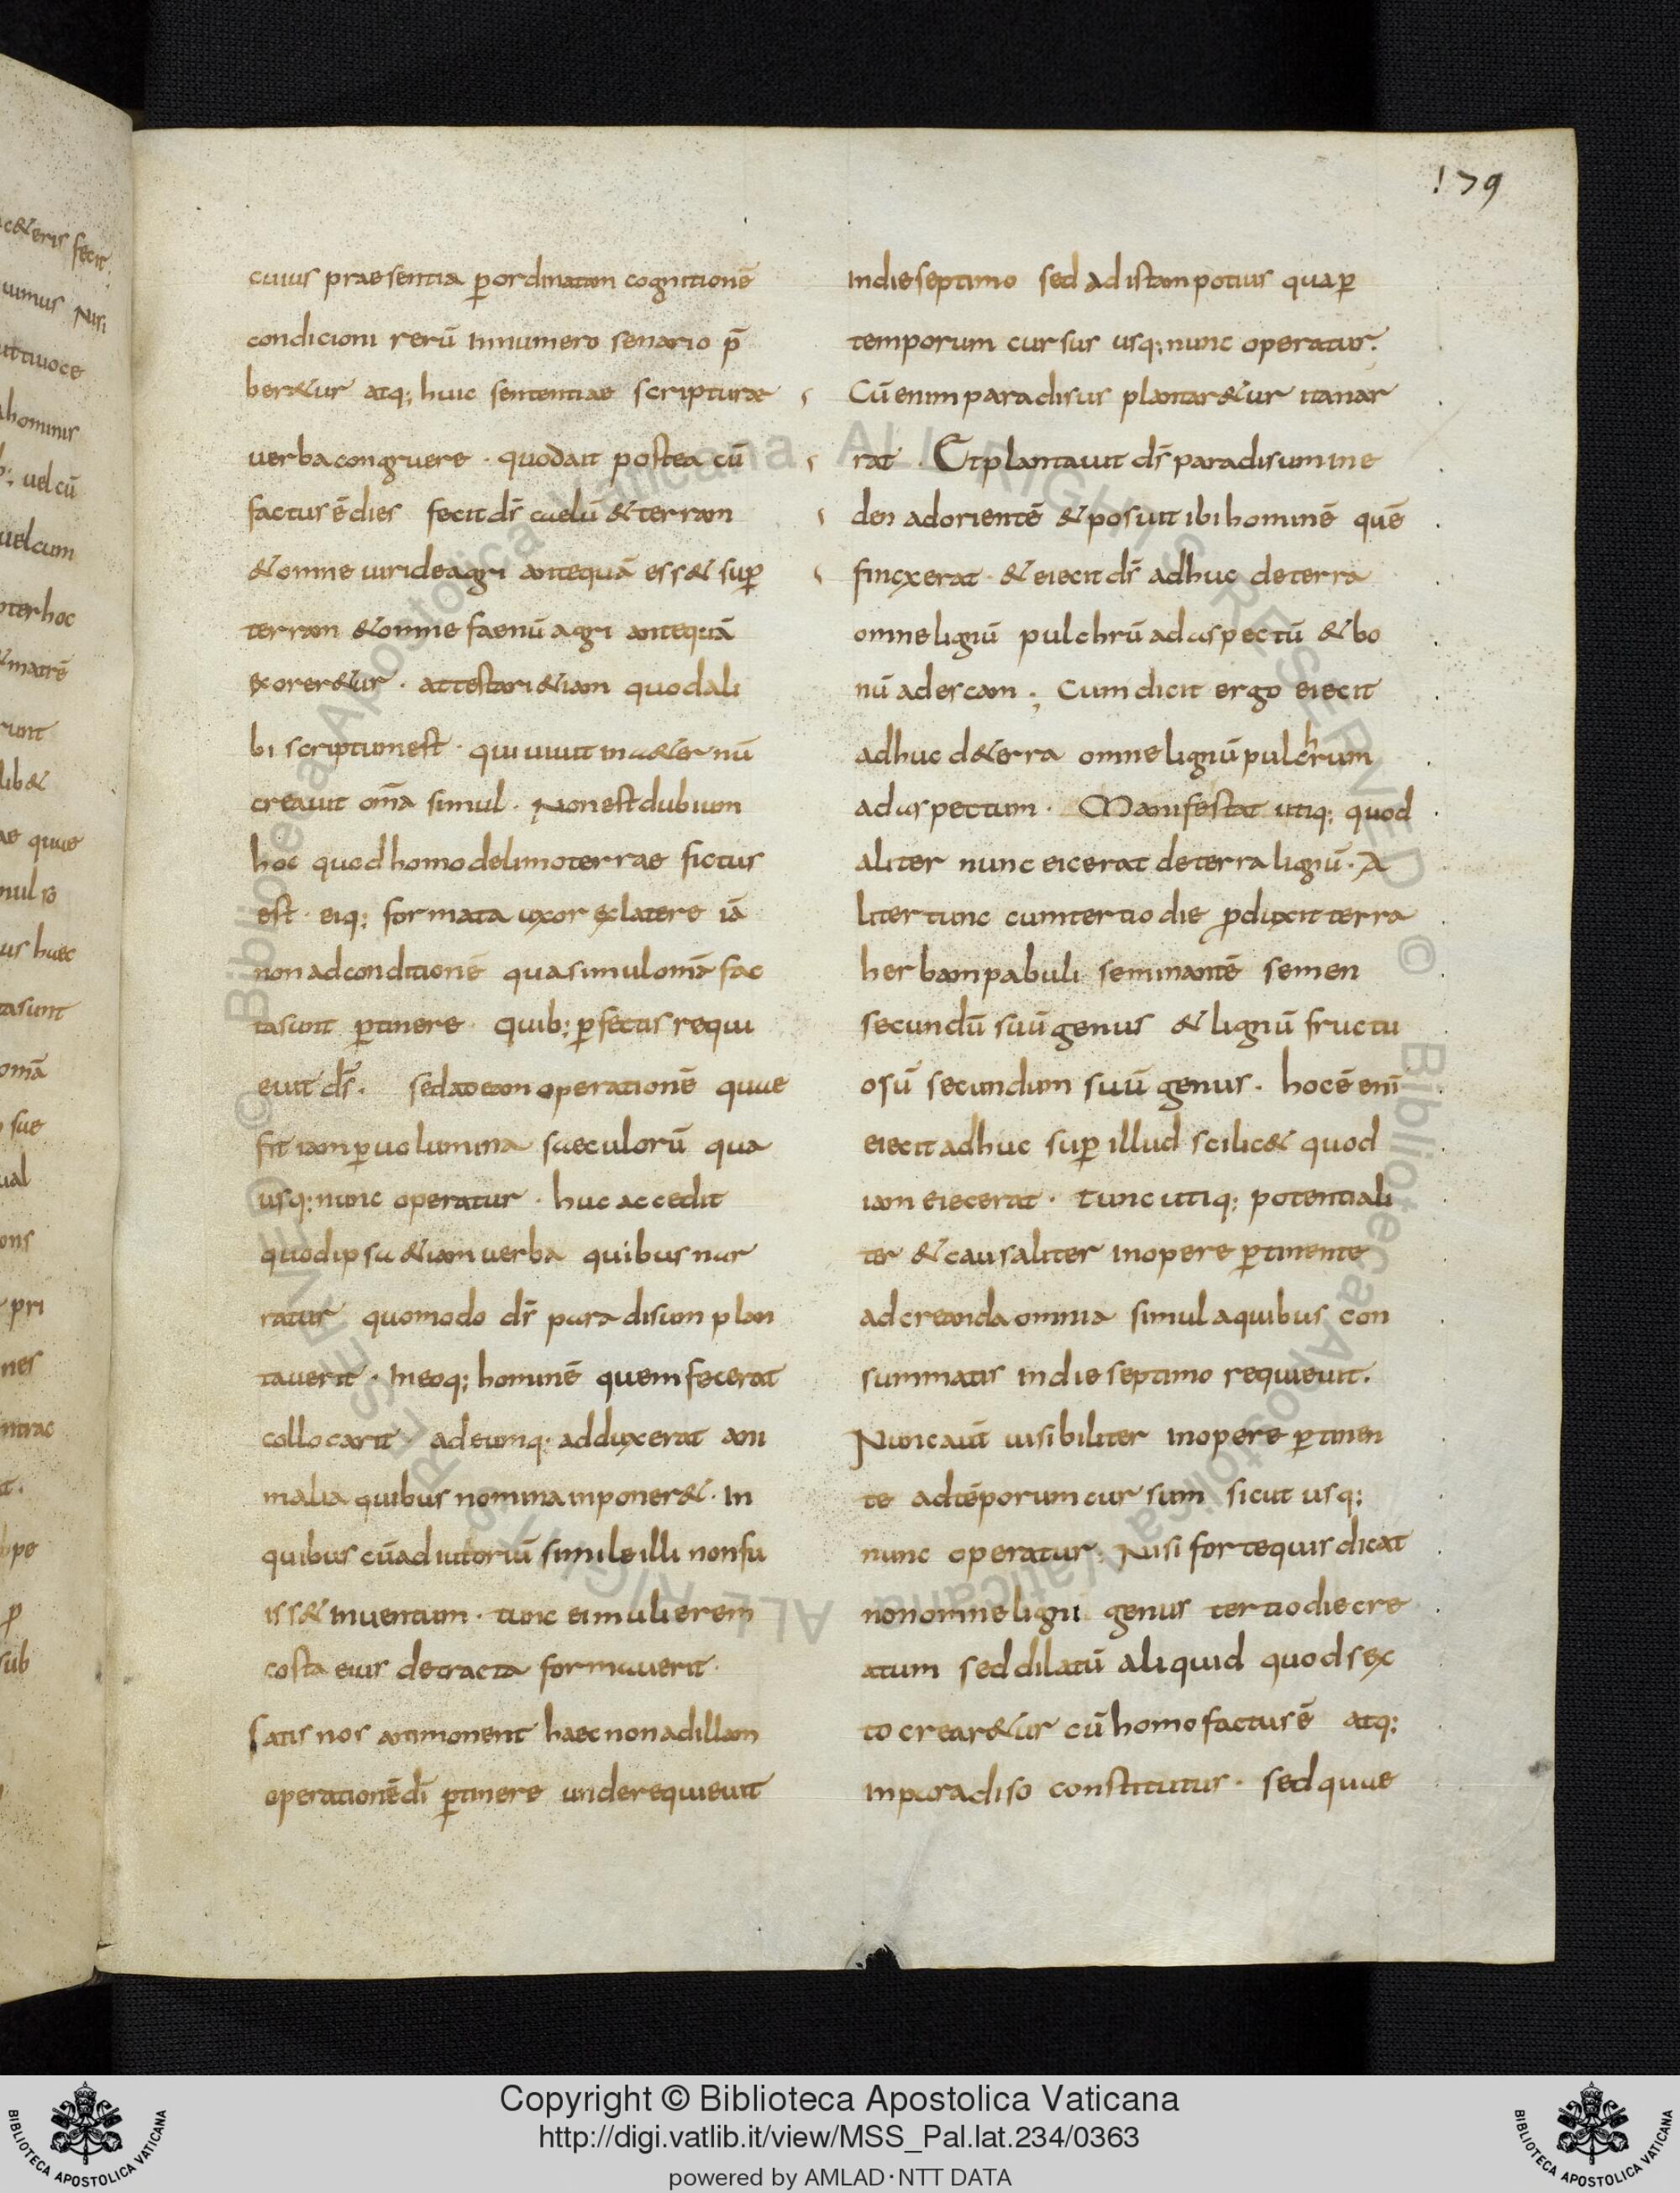 179
cuius praesentia ꝑordinatam cognitionē
condicioni rerū innumero senario p̄
ber&ur atq; huic sententiae scripturae
uerbacongruere · quodait postea cū
factus ē dies fecit dr̄ caelū & terram
& omne uirideagri antequā ess& suꝑ
terram & omne faenū agri antequā
exorer&ur · attestari &iam quodali
bi scriptumest · qui uiuit in a&ernū
creauit om̄a simul · Non estdubium
hoc quod homo delimoterrae fictus
est · eiq; formata uxor exlatere iā
non adconditionē quasimulom̄a fac
tasunt ꝑtinere · quib; ꝑfectis requi
euit dr̄s · sedadeam operationē quae
fit iam ꝑuolumina saeculorū qua
usq; nunc operatur · huc accedit
quodipsa &iam uerba quibus nar
ratur quomodo dr̄ paradisum plan
tauerit · Ineoq; hominē quem fecerat
collocarit · adeumq; adduxerat ani
malia quibus nomina inponer& · In
quibus cūadiutoriū simile illi nonfu
iss& inuentum · tunc eimulierem
costa eius detracta formauerit ·
Satis nos ammonent haec nonadillam
operationē dī ꝑtinere underequieuit
indieseptimo sed adistampotius quaꝑ
temporum cursus usq; nunc operatur ;
Cū enim paradisus plantar&ur itanar
rat · Etplantauit dr̄ paradisumine
den adorientē & posuit ibi hominē quē
finxerat · & eiecit dr̄ adhuc deterra
omnelignū pulchrū ad aspectū & bo
nū adescam ; Cum dicit ergo eiecit
adhuc d&erra omnelignū pulchrum
ad aspectum · Manifestat utiq; quod
aliter nunc eicerat deterra lignū · A
liter tunc cumtertio die ꝓduxit terra
herbampabuli seminantē semen
secundū suū genus & lignū fructu
osū secundum suū genus · hoc ē enī
eiecit adhuc suꝑ illud scilic& quod
iam eiecerat · tunc utiq; potentiali
ter & causaliter inopere ꝑtinente
ad creanda omnia simul aquibus con
summatis indie septimo requieuit ·
Nunc aūt uisibiliter inopere ꝑtinen
te adtēporum cursum sicut usq;
nunc operatur · Nisi fortequis dicat
nonomneligni genus tertiodiecre
atum sed dilatū aliquid quodsex
to crear&ur cū homo factus ē atq;
inparadiso constitutus · sed quae
Copyright © Biblioteca Apostolica Vaticana
http://digi.vatlib.it/view/MSS_Pal.lat.234/0363
powered by AMLAD·NTT DATA
BIBLIOTECA APOSTOLICA VATICANA
BIBLIOTECA APOSTOLICA VATICANA
© Biblioteca Apostolica Vaticana ALL RIGHTS RESERVED © Biblioteca Apostolica Vaticana ALL RIGHTS RESERVED